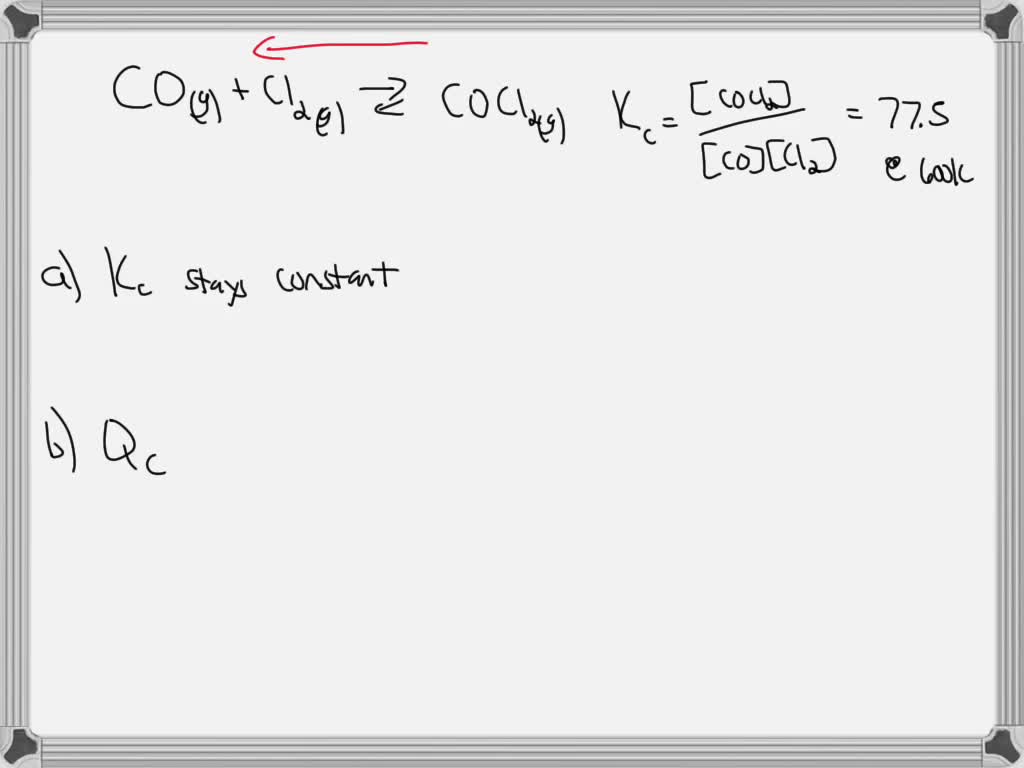 CO(g) + Cl2(g) ⇄ COCl2(g) Kc = [COCl2] / [CO][Cl2] = 77.5 @ 600K
a) Kc stays constant
b) Qc